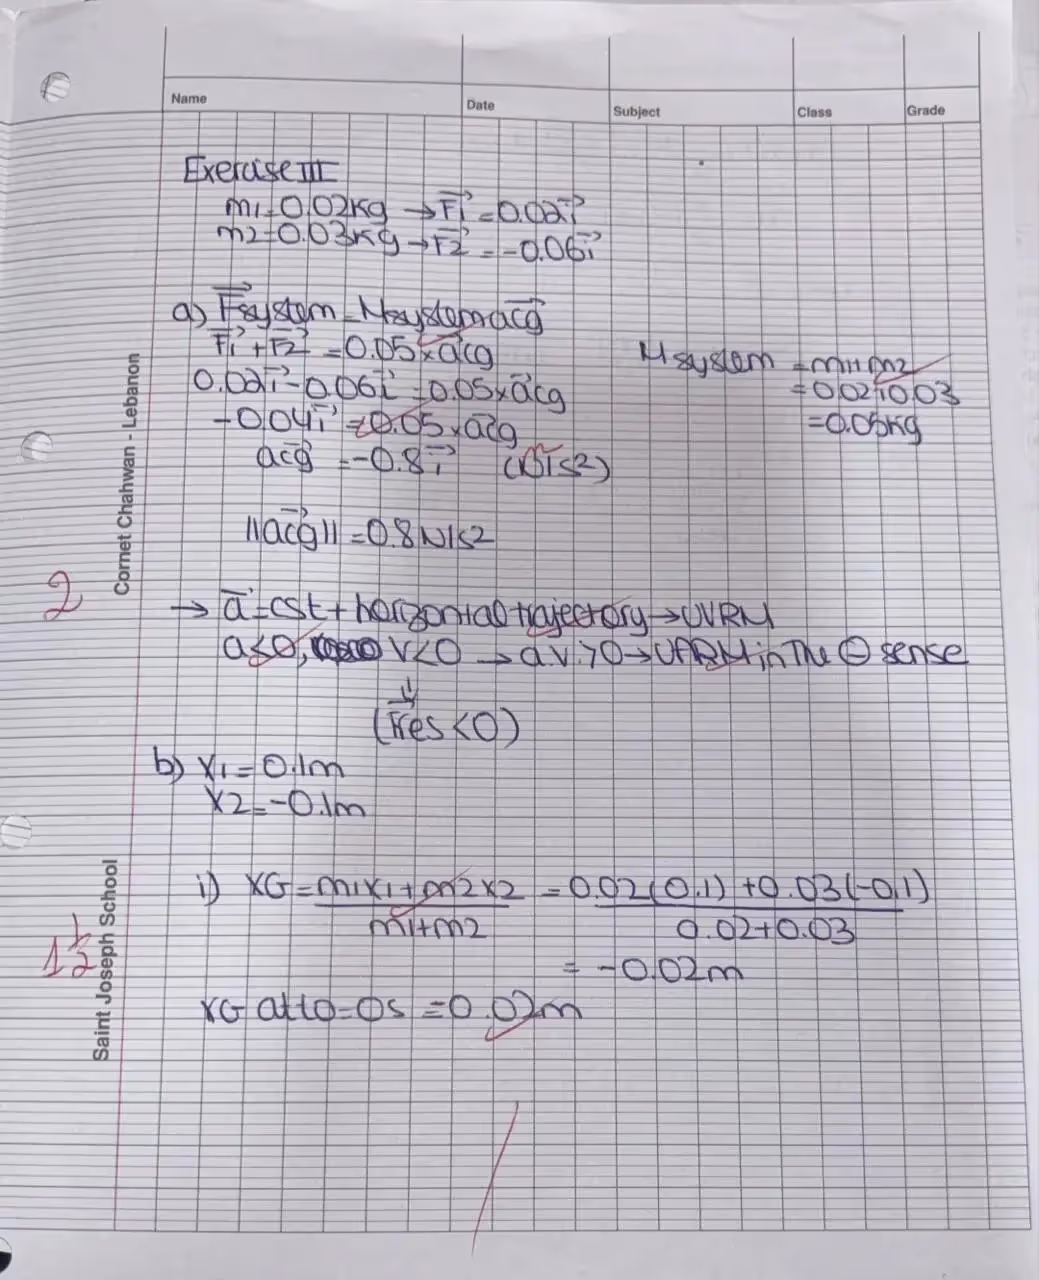 Name Date Subject Class Grade
Exercise III
m1=0.02kg →F1=0.02i
m2=0.03kg→F2=-0.06i
a) Fsystem=Msystem aCG
F1+F2=0.05×aCG
Msystem=m1+m2
0.02i-0.06i=0.05×aCG
=0.02+0.03
-0.04i=0.05×aCG
=0.05kg
aCG=-0.8i (N/s2)
||aCG||=0.8N/s2
2
→ a=cst+horizontal trajectory→UVRM
a<0, V<0 →a.v.>0→UARM in the ⊖ sense
(Fres<0)
b) x1=0.1m
x2=-0.1m
i) XG=m1x1+m2x2/m1+m2=0.02(0.1)+0.03(-0.1)/0.02+0.03
1 1/2
=-0.02m
XG at t0=0s=0.02m
Cornet Chahwan - Lebanon
Saint Joseph School